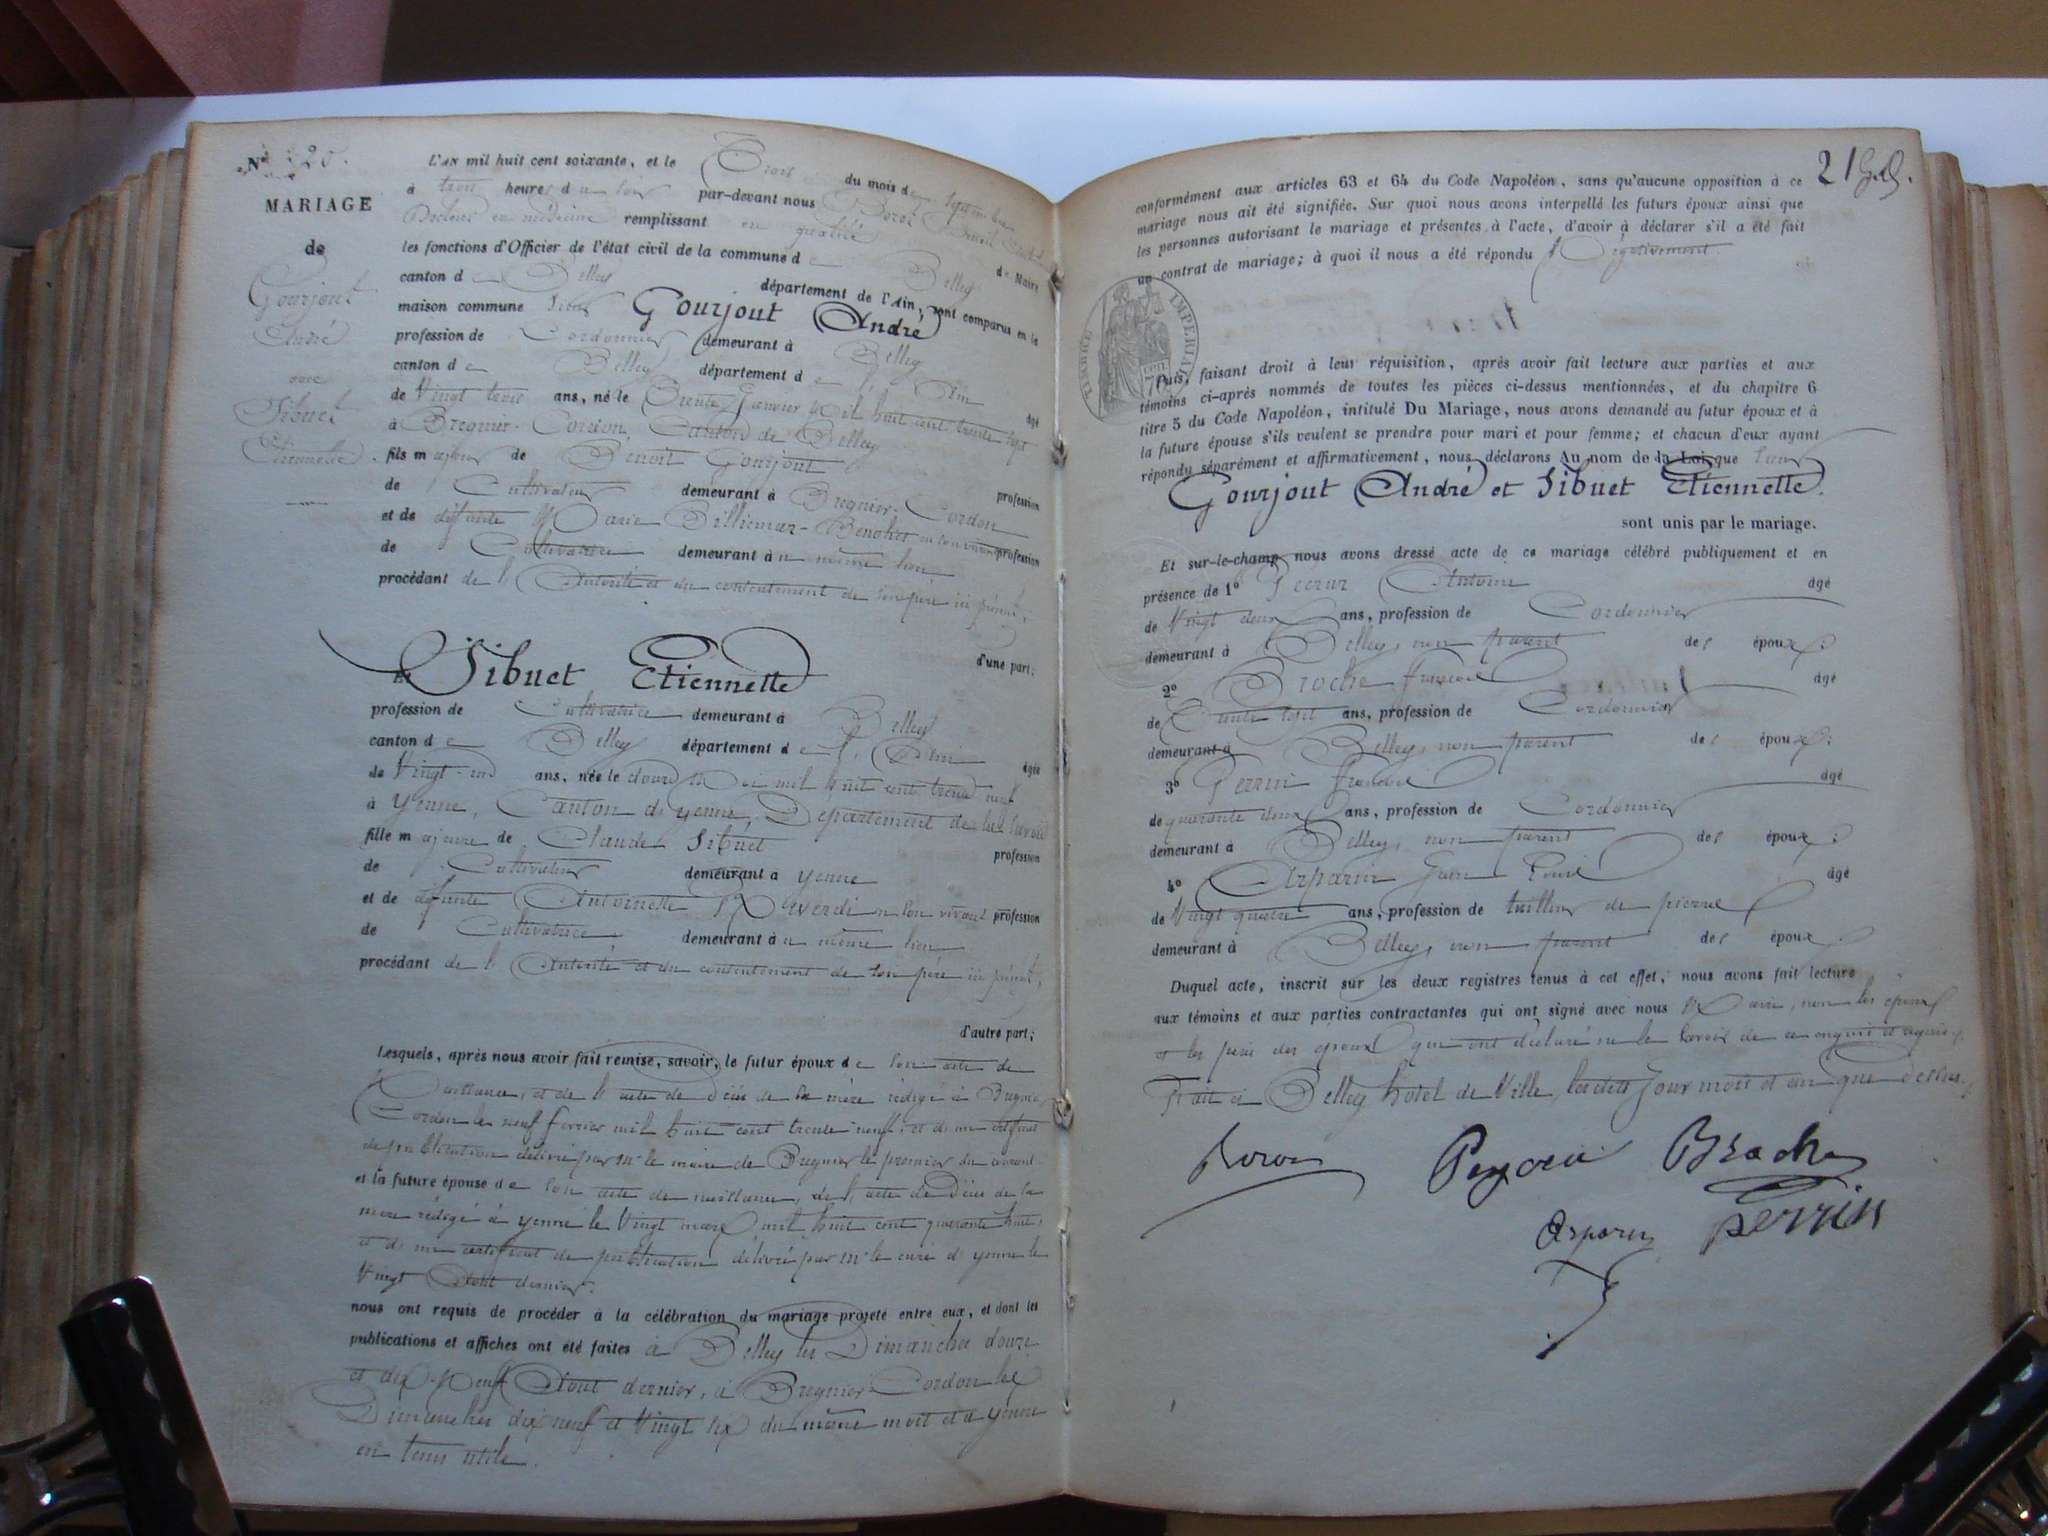 N° 25.
MARIAGE
de
Gourjout
André
avec
Sibuet
Etiennette.
L'AN mil huit cent soixante, et le Trois du mois de septembre
à trois heures du soir par-devant nous
Docteur en médecine remplissant en qualité de Maire
les fonctions d'Officier de l'état civil de la commune de Belley
canton de Belley département de l'Ain, sont comparus en la
maison commune Sieur Gourjout André
profession de Cordonnier demeurant à Belley
canton de Belley département de l'Ain âgé
de Vingt trois ans, né le Trente Janvier Mil huit cent trente sept
à Bregnier-Cordon, Canton de Belley
fils majeur de Benoit Gourjout profession
de Cultivateur demeurant à Bregnier-Cordon
et de défunte Marie en son vivant profession
de Cultivatrice demeurant au même lieu
procédant de l'Autorité et du consentement de son père ici présent,
d'une part;
Et Sibuet Etiennette
profession de Cultivatrice demeurant à Belley
canton de Belley département de l'Ain âgée
de Vingt-un ans, née le douze Mai mil huit cent trente neuf
à Yenne, Canton d'Yenne, Département de la Savoie
fille majeure de Claude Sibuet profession
de Cultivateur demeurant à Yenne
et de défunte Antoinette Reverdi en son vivant profession
de Cultivatrice demeurant au même lieu
procédant de l'Autorité et du consentement de son père ici présent,
d'autre part;
Lesquels, après nous avoir fait remise, savoir, le futur époux de son acte de
Naissance, et de l'acte de Décès de sa mère rédigé à Bregnier
Cordon le neuf février mil huit cent trente neuf, et d'un certificat
de publication délivré par Mr le maire de Bregnier le premier du courant
et la future épouse de son acte de naissance, de l'acte de Décès de sa
mère rédigé à Yenne le Vingt mars mil huit cent quarante huit,
et d'un certificat de publication délivré par Mr le curé d'Yenne le
Vingt Août dernier.
nous ont requis de procéder à la célébration du mariage projeté entre eux, et dont les
publications et affiches ont été faites à Belley les Dimanches douze
et dix-neuf Août dernier, à Bregnier-Cordon les
Dimanches dix neuf et Vingt six du même mois et à Yenne
en tems utile.
21
conformément aux articles 63 et 64 du Code Napoléon, sans qu'aucune opposition à ce
mariage nous ait été signifiée. Sur quoi nous avons interpellé les futurs époux ainsi que
les personnes autorisant le mariage et présentes à l'acte, d'avoir à déclarer s'il a été fait
un contrat de mariage; à quoi il nous a été répondu Négativement.
TIMBRE IMPERIAL
Puis, faisant droit à leur réquisition, après avoir fait lecture aux parties et aux
témoins ci-après nommés de toutes les pièces ci-dessus mentionnées, et du chapitre 6
titre 5 du Code Napoléon, intitulé Du Mariage, nous avons demandé au futur époux et à
la future épouse s'ils veulent se prendre pour mari et pour femme; et chacun d'eux ayant
répondu séparément et affirmativement, nous déclarons Au nom de la Loi, que Sieur
Gourjout André et Sibuet Etiennette.
sont unis par le mariage.
Et sur-le-champ nous avons dressé acte de ce mariage célébré publiquement et en
présence de 1° Antoine âgé
de Vingt deux ans, profession de Cordonnier
demeurant à Belley, non parent des époux;
2° Broche François âgé
de Trente sept ans, profession de Cordonnier
demeurant à Belley, non parent des époux;
3° Perrin François âgé
de quarante deux ans, profession de Cordonnier
demeurant à Belley, non parent des époux;
4° Arparin Jean Louis âgé
de Vingt quatre ans, profession de tailleur de pierre
demeurant à Belley, non parent des époux.
Duquel acte, inscrit sur les deux registres tenus à cet effet, nous avons fait lecture
aux témoins et aux parties contractantes qui ont signé avec nous Maire, non les époux
et les pères des époux qui ont déclaré ne le savoir de ce enquis et requis.
Fait à Belley hôtel de Ville, lesdits jour mois et an que dessus.
Broche
Arparin Perrin